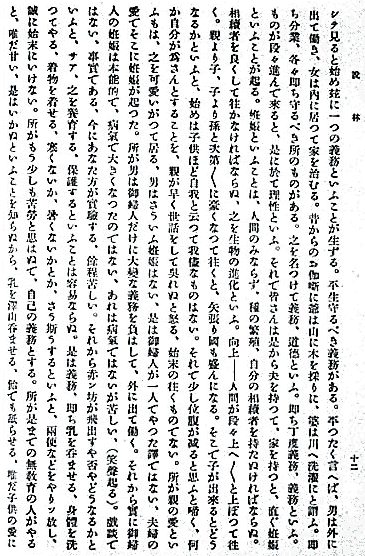 說林
十二
シク見ると始め玆に一つの義務といふことが生ずる。平生守るべき義務がある。平つたく言へば、男は外に
出て働き、女は內に居つて家を治むる。昔からのお伽噺に爺は山に木を採りに、婆は川へ洗濯にと謂ふ。即
ち分業、各々即ち守るべき所のものがある。之を名つけて義務、道德といふ。即ち丁度義務、義務といふ。
ものが段々進んで來ると、是に於て理性といふ。それで皆さんは是から夫を持つて、家を持つと、直ぐ妊娠
といふことが起る。妊娠といふことは、人間のみならず、種の繁殖、自分の相續者を持たぬければならぬ。
相續者を良くして往かなければならぬ、之を生物の進化といふ。向上――人間が段々上へ〱とのぼつて往
く。親より子、子より孫と次第〱に豪くなつて往くと、矢張り國も盛んになる。そこで子が出來るとどう
なるかといふと、始めは子供ほど自我と云つて我儘なものはない。それで少し位腹が減ると思ふと啼く、何
か自分が爲さんとすることを、親が早く世話をして吳れぬと怒る、始末の往くものでない。所が親の愛とい
ふもは、之を可愛いがつて居る、男はさういふ妊娠はない、是は御婦人が一人でやつた譯ではない、夫婦の
愛でそこに妊娠が起つた。所が男は御婦人だけに大變な義務を負はして、外に出て働く。それから實に御婦
人の妊娠は本能的で、病氣で大きくなつたのではない、あれは病氣ではないが苦しい、（笑聲起る）。戲談で
はない、事實である、今にあなた方が實驗する、餘程苦しい。それから赤ン坊が飛出すや否やどうなるかと
いふと、サア、之を養育する、保護するといふことは容易ならぬ。是は義務、即ち乳を呑ませる、身體を洗
つてやる、着物を着せる、寒くないか、暑くないかとか、さう斯うするといふと、兩便などをやりツ放し、
誠に始末にいけない。所がもう少しも苦勞と思はぬて、自己の義務とする。所が是までの無敎育の人がやる
と、唯だ甘い、是はいかぬといふことを知らぬから、乳を澤山呑ませる、飴でも舐らせる、唯だ子供の愛に